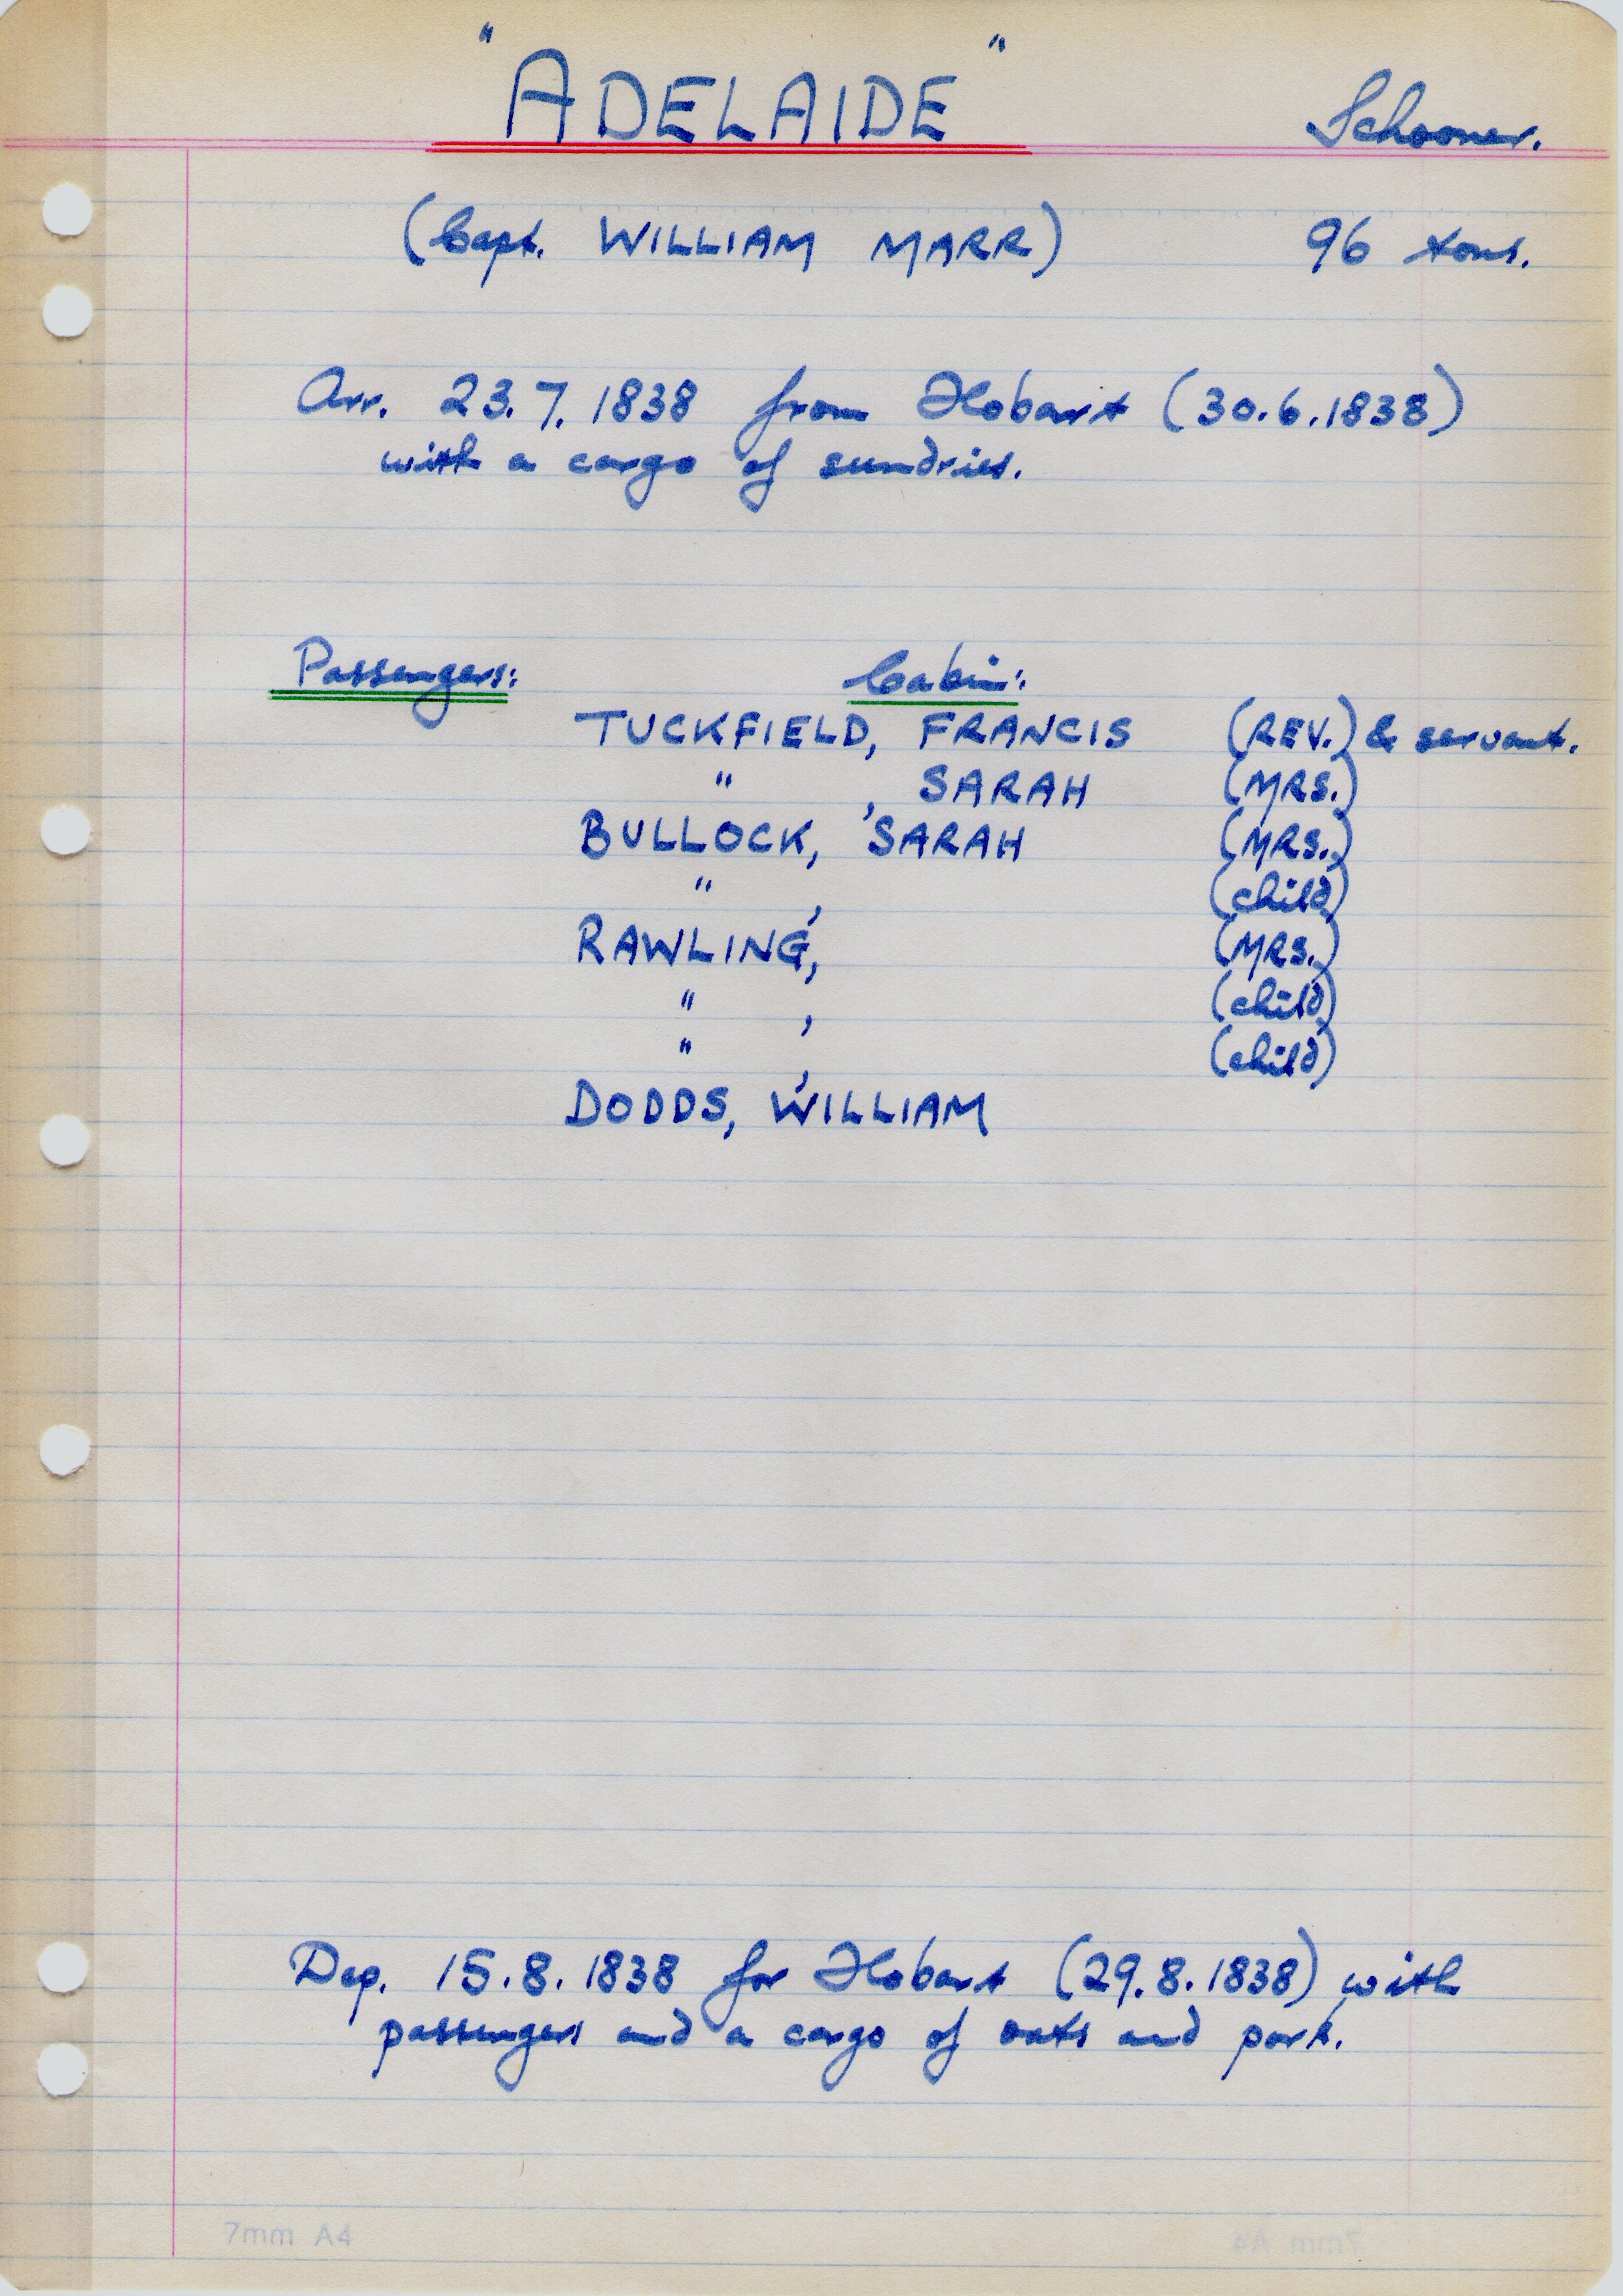 "ADELAIDE" Schooner.
(Capt. WILLIAM MARR) 96 tons.
Arr. 23.7.1838 from Hobart (30.6.1838)
with a cargo of sundries.
Passengers: Cabin:
TUCKFIELD, FRANCIS (REV.) & servant.
" , SARAH (MRS.)
BULLOCK, SARAH (MRS.)
" , (child)
RAWLING, (MRS.)
" , (child)
" , (child)
DODDS, WILLIAM
Dep. 15.8.1838 for Hobart (29.8.1838) with
passengers and a cargo of oats and pork.
7mm A4 7mm A4